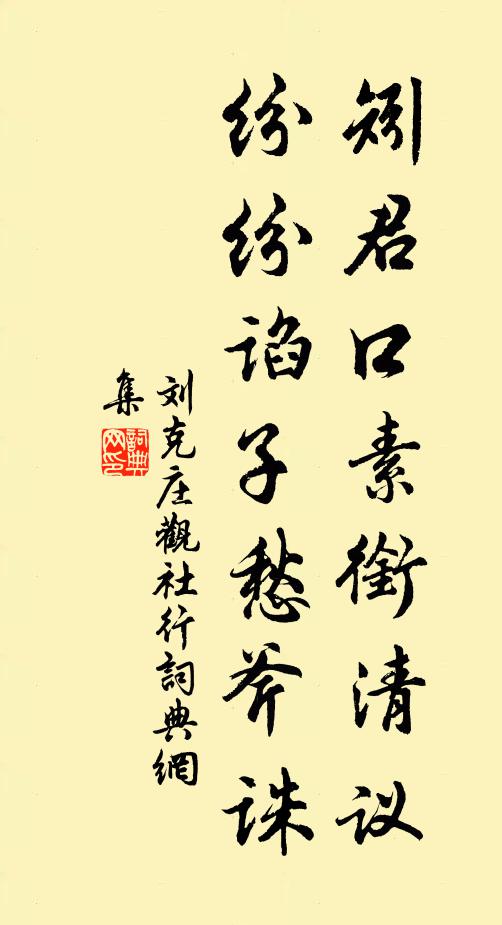 矧君口素銜清议
纷纷谄子愁斧诛
刘克庄觀社行詞典網
集
詞典网印